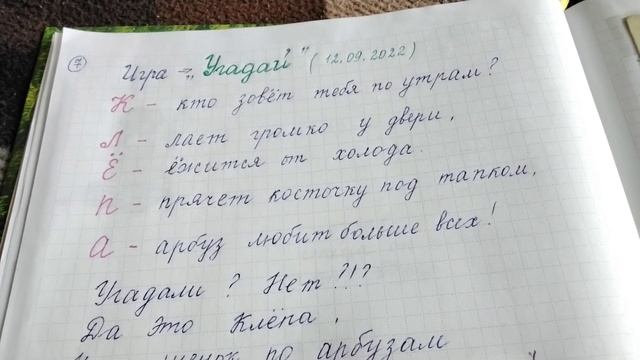 7 Игра – "Угадай" (12.09.2022)
К – кто зовёт тебя по утрам?
Л – лает громко у двери,
Ё – ёжится от холода.
П – прячет косточку под тапком,
А – арбуз любит больше всех!
Угадали? Нет?!?
Да это Клёпа,
по арбузам